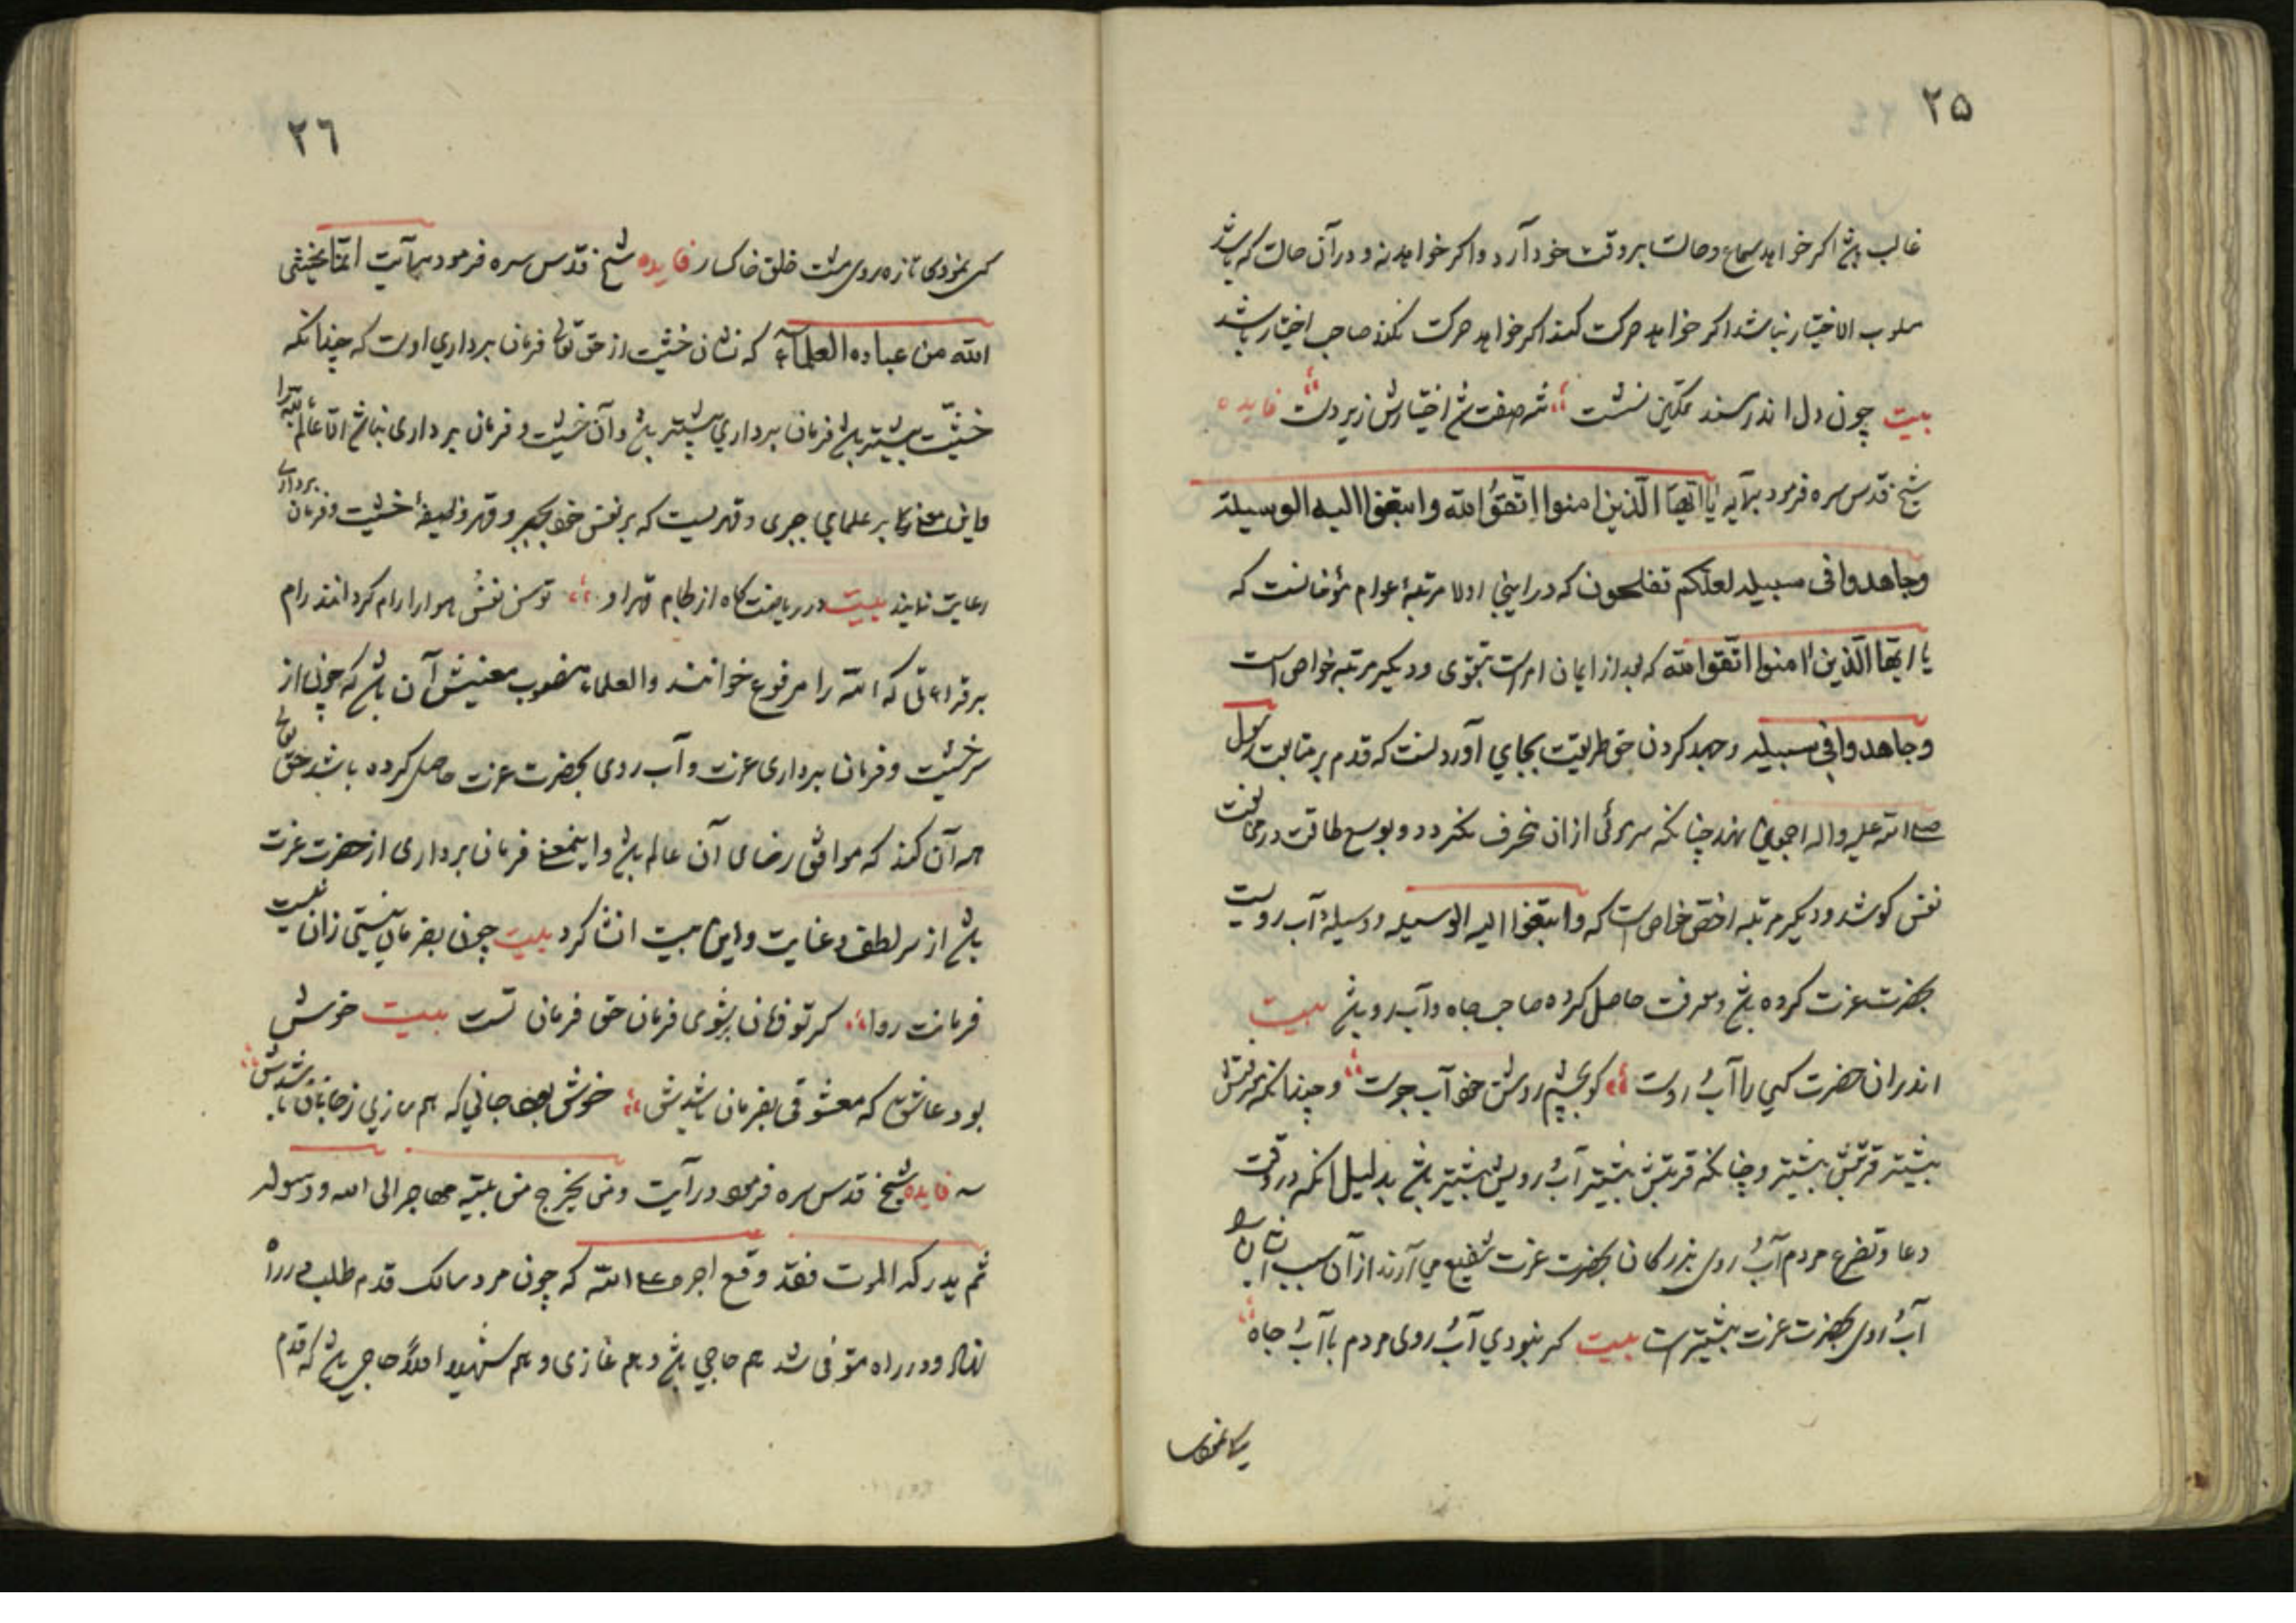 ۲۵
غالب باشد اکر خواهد سماع و حالت بر وقت خود آرد و اکر خواهد نه و در آن حالت که باشد
مسلوب الاختیار نباشد اکر خواهد حرکت کند اکر خواهد حرکت نکند صاحب اختیار باشد
بیت چون دل اندر مسند تمکین نشست شد صفت اختیارش زیر دست فایده
شیخ قدس سره فرمود در آیه یا ایها الذین امنوا اتقوا الله وابتغوا الیه الوسیلة
وجاهدوا فی سبیله لعلکم تفلحون که در اینجا اولا مرتبۀ عوام مؤمنانست که
یا ایها الذین امنوا اتقوا الله که بعد از ایمان امر است بتقوی و دیکر مرتبه خواص است
وجاهدوا فی سبیله و جهد کردن حق طریقت بجای آوردنست که قدم بر متابعت رسول
صلی الله علیه واله اجمعین نهد چنانکه سر موئی ازان منحرف نکردد و بوسع طاقت در مخالفت
نفس کوشد و دیکر مرتبه اخص خواص است که وابتغوا الیه الوسیله و وسیلۀ آب رویست
بحضرت عزت کرده باشد و معرفت حاصل کرده صاحب جاه و آب رو باشد بیت
اندران حضرت کسی را آب روست کو بچشم روشنش خود آب جوست و چندانکه معرفتش
بیشتر قربتش بیشتر و چنانکه قربتش بیشتر آب رویش بیشتر باشد بدلیل آنکه در وقت
دعا و تضرع مردم آب روی بزرکان بحضرت عزت شفیع می آرند از آن سبب ایشان را
آب روی بحضرت عزت بیشترست بیت کر نبودی آب روی مردم با آب جاه
۲٦
کی نمودی تازه روی مشت خلق خاکسار فایده شیخ قدس سره فرمود در آیت انما یخشی
الله من عباده العلماء که نشان خشیت از حق تعالی فرمان برداری اوست که چندانکه
خشیت بیشتر باشد فرمان برداری بیشتر باشد و آن خشیت و فرمان برداری نباشد الا عالم
برداری
واین معنی بر علمای جبری و قهریست که بر نفس خود بجبر و قهر وظیفۀ خشیت و فرمان
رعایت نمایند بیت در ریاضت کاه از لجام قهر او توسن نفس هوا را رام کرداند رام
بر قراءتی که الله را مرفوع خوانند والعلماء منصوب معنیش آن باشد که چون از
سر خشیت و فرمان برداری عزت و آب روی بحضرت عزت حاصل کرده باشد حق تعالی
همه آن کند که موافق رضای آن عالم باشد و اینمعنی فرمان برداری از حضرت عزت
باشد از سر لطف و عنایت و این بیت انشا کرد بیت چون بفرمان نیستی زان نیست
فرمانت روا کر تو فرمان بشنوی فرمان حق فرمان تست بیت خوش
بود عاشق که معشوقی بفرمان باشدش خوش بود جانی که همرازی ز جانان باشدش
فایده شیخ قدس سره فرمود در آیت ومن یخرج من بیته مهاجرا الی الله ورسوله
ثم یدرکه الموت فقد وقع اجره علی الله که چون مرد سالک قدم طلب در راه
نهاد و در راه متوفی شد هم حاجی باشد و هم غازی و هم شهید اولا حاجی باشد که قدم